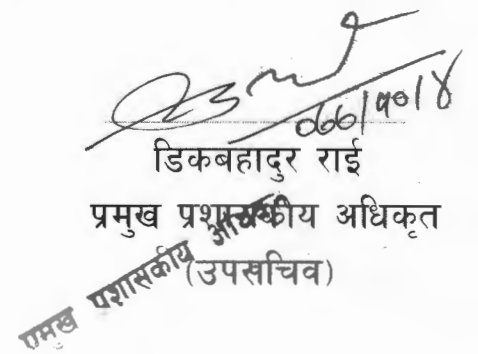 ०६६/१०/४
डिकबहादुर राई
प्रमुख प्रशासकीय अधिकृत
(उपसचिव)
प्रमुख प्रशासकीय